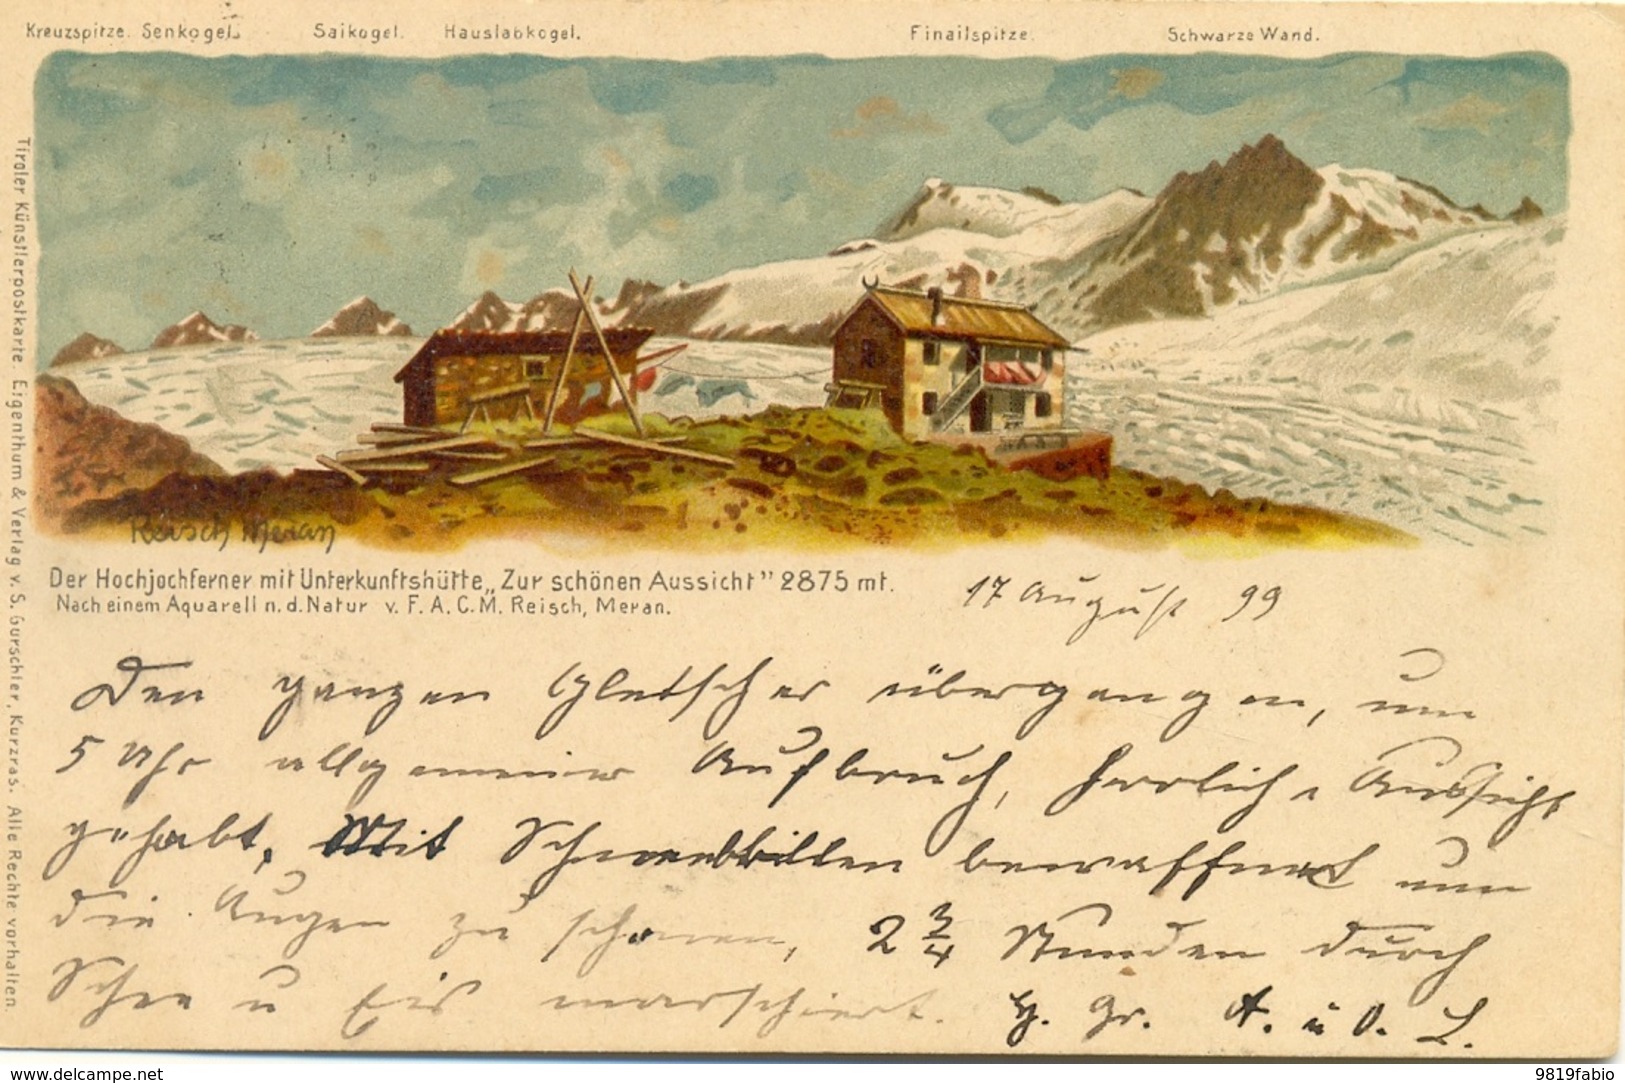 Kreuzspitze. Senkogel. Saikogel. Hauslabkogel. Finailspitze. Schwarze Wand.
Tiroler Künstlerpostkarte. Eigenthum & Verlag v. S. Gurschler, Kurzras. Alle Rechte vorhalten.
Reisch Meran
Der Hochjochferner mit Unterkunftshütte „Zur schönen Aussicht" 2875 mt.
Nach einem Aquarell n. d. Natur v. F. A. C. M. Reisch, Meran.
17 August 99
Den ganzen Gletscher übergangen, um
5 Uhr allgemeiner Aufbruch, herrliche Aussicht
gehabt, Mit Schneebrillen bewaffnet um
die Augen zu schonen, 2 3/4 Stunden durch
Schnee u Eis marschiert. H. Gr. A. u O. L.
delcampe.net
9819fabio